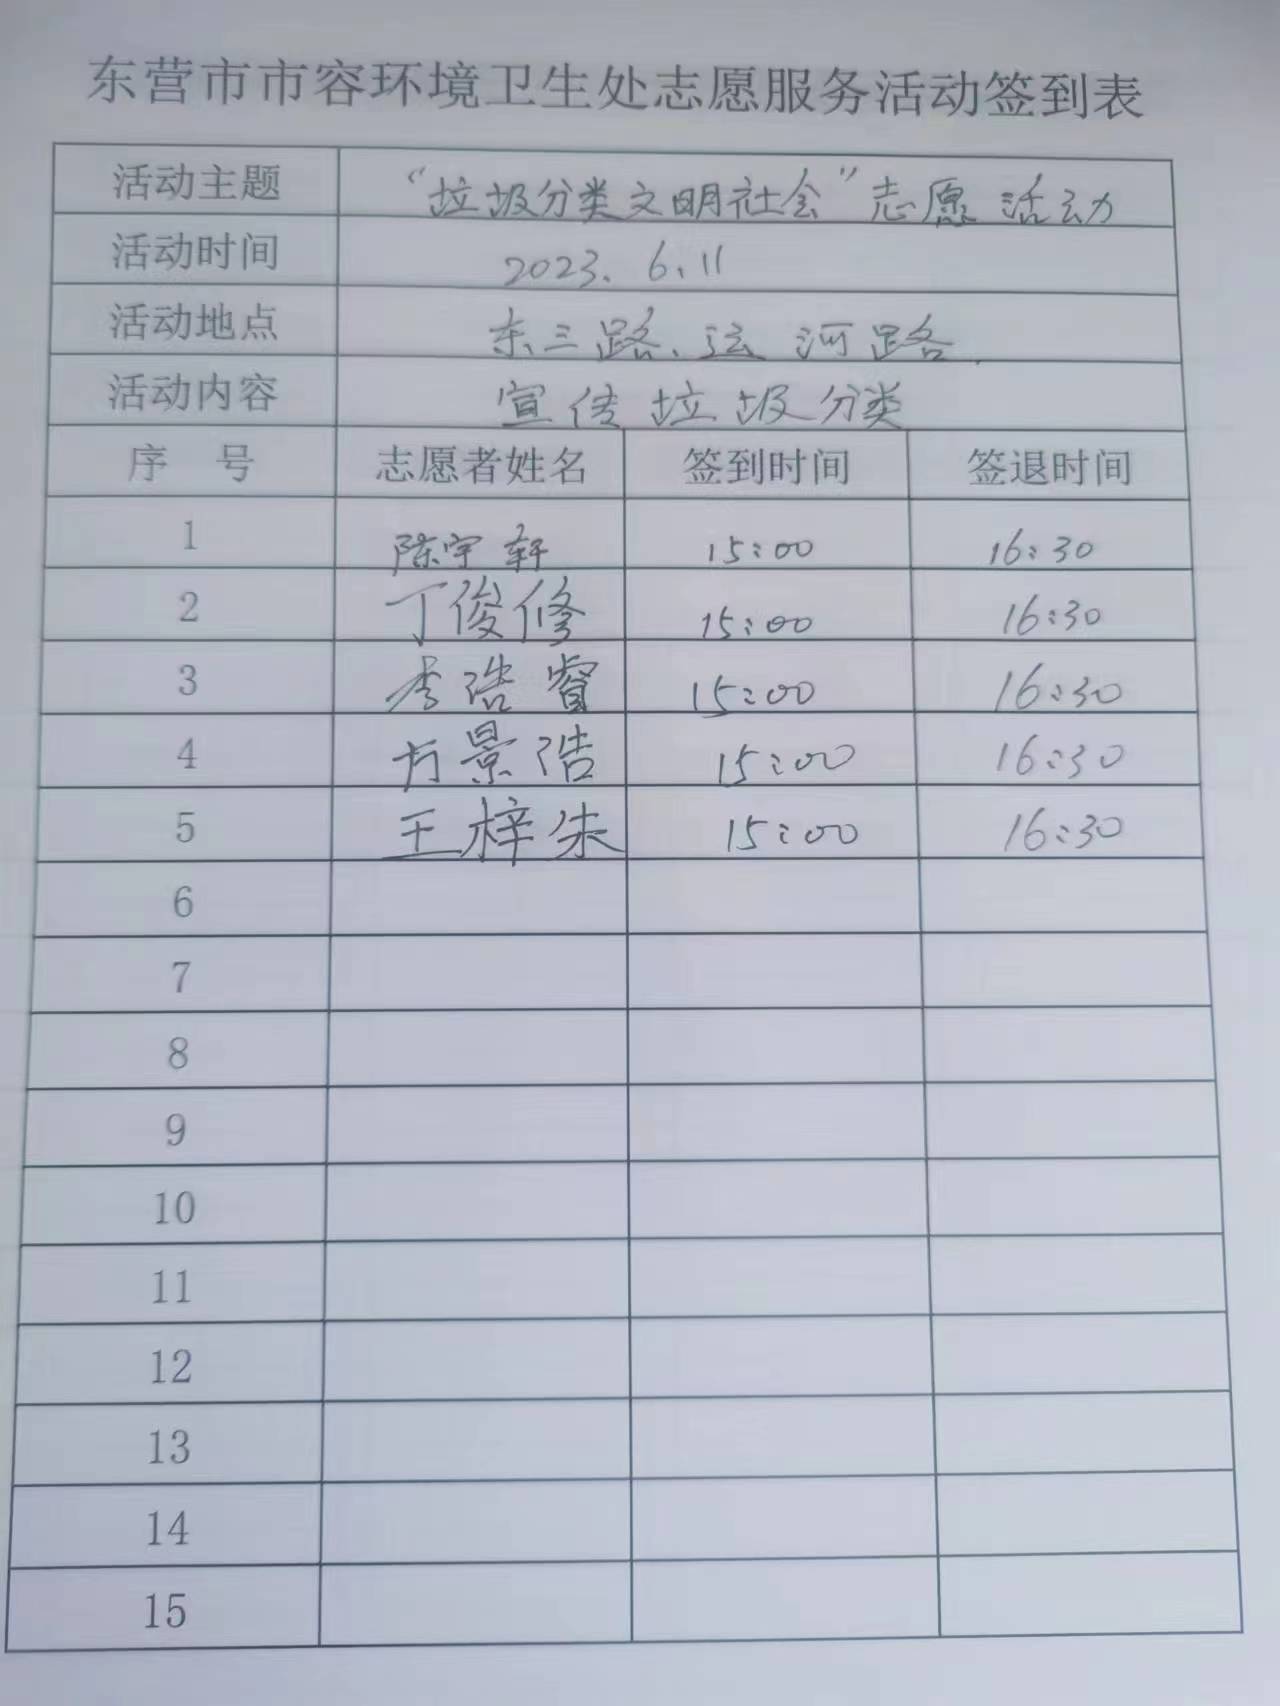 东营市市容环境卫生处志愿服务活动签到表
活动主题 “垃圾分类文明社会”志愿活动
活动时间 2023.6.11
活动地点 东三路、运河路.
活动内容 宣传垃圾分类
序 号 志愿者姓名 签到时间 签退时间
1 陈宇轩 15:00 16:30
2 丁俊修 15:00 16:30
3 李浩睿 15:00 16:30
4 方景浩 15:00 16:30
5 王梓朱 15:00 16:30
6
7
8
9
10
11
12
13
14
15